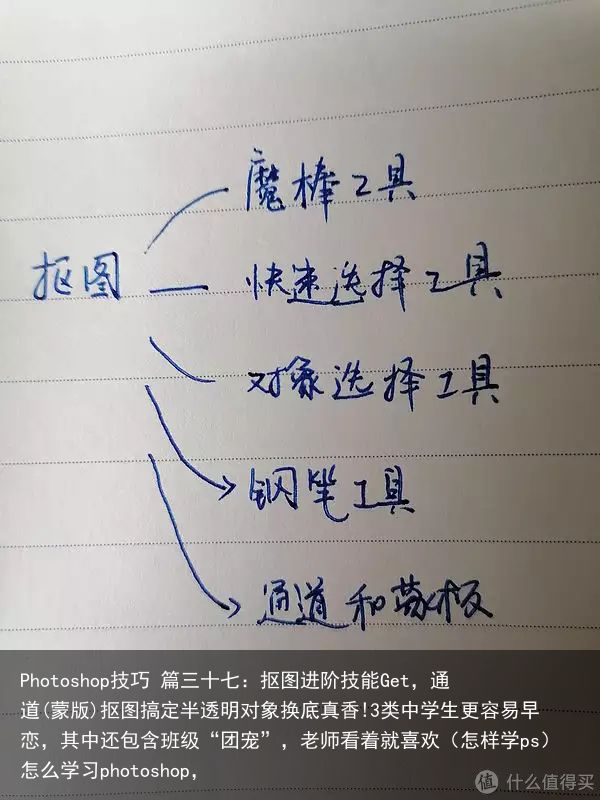 魔棒工具
抠图
快速选择工具
对象选择工具
钢笔工具
通道和蒙板
Photoshop技巧 篇三十七：抠图进阶技能Get，通
道(蒙版)抠图搞定半透明对象换底真香!3类中学生更容易早
恋，其中还包含班级“团宠”，老师看着就喜欢（怎样学ps）
怎么学习photoshop，
值 什么值得买